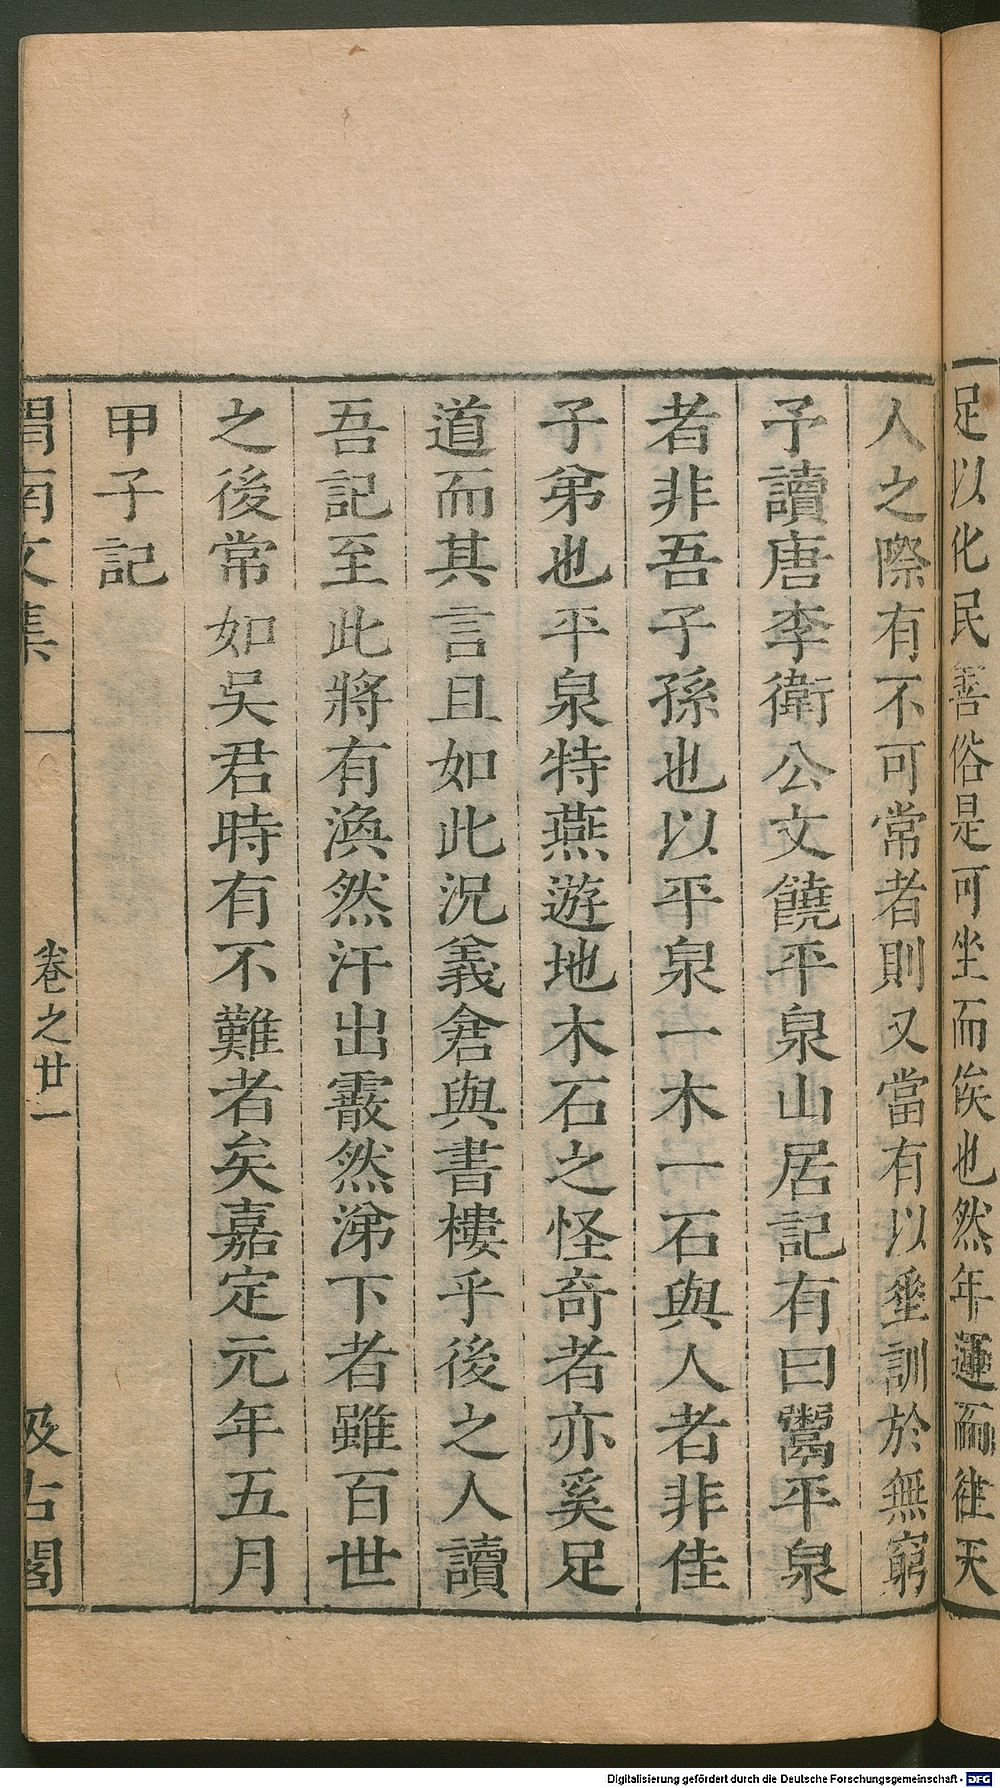 足以化民善俗是可坐而俟也然年運而往天
人之際有不可常者則又當有以垂訓於無窮
予讀唐李衛公文饒平泉山居記有曰鬻平泉
者非吾子孫也以平泉一木一石與人者非佳
子弟也平泉特燕遊地木石之怪奇者亦奚足
道而其言且如此況義倉與書樓乎後之人讀
吾記至此將有渙然汗出霰然涕下者雖百世
之後常如吳君時有不難者矣嘉定元年五月
甲子記
渭南文集
卷之廿一
汲古閣
Digitalisierung gefördert durch die Deutsche Forschungsgemeinschaft - DFG